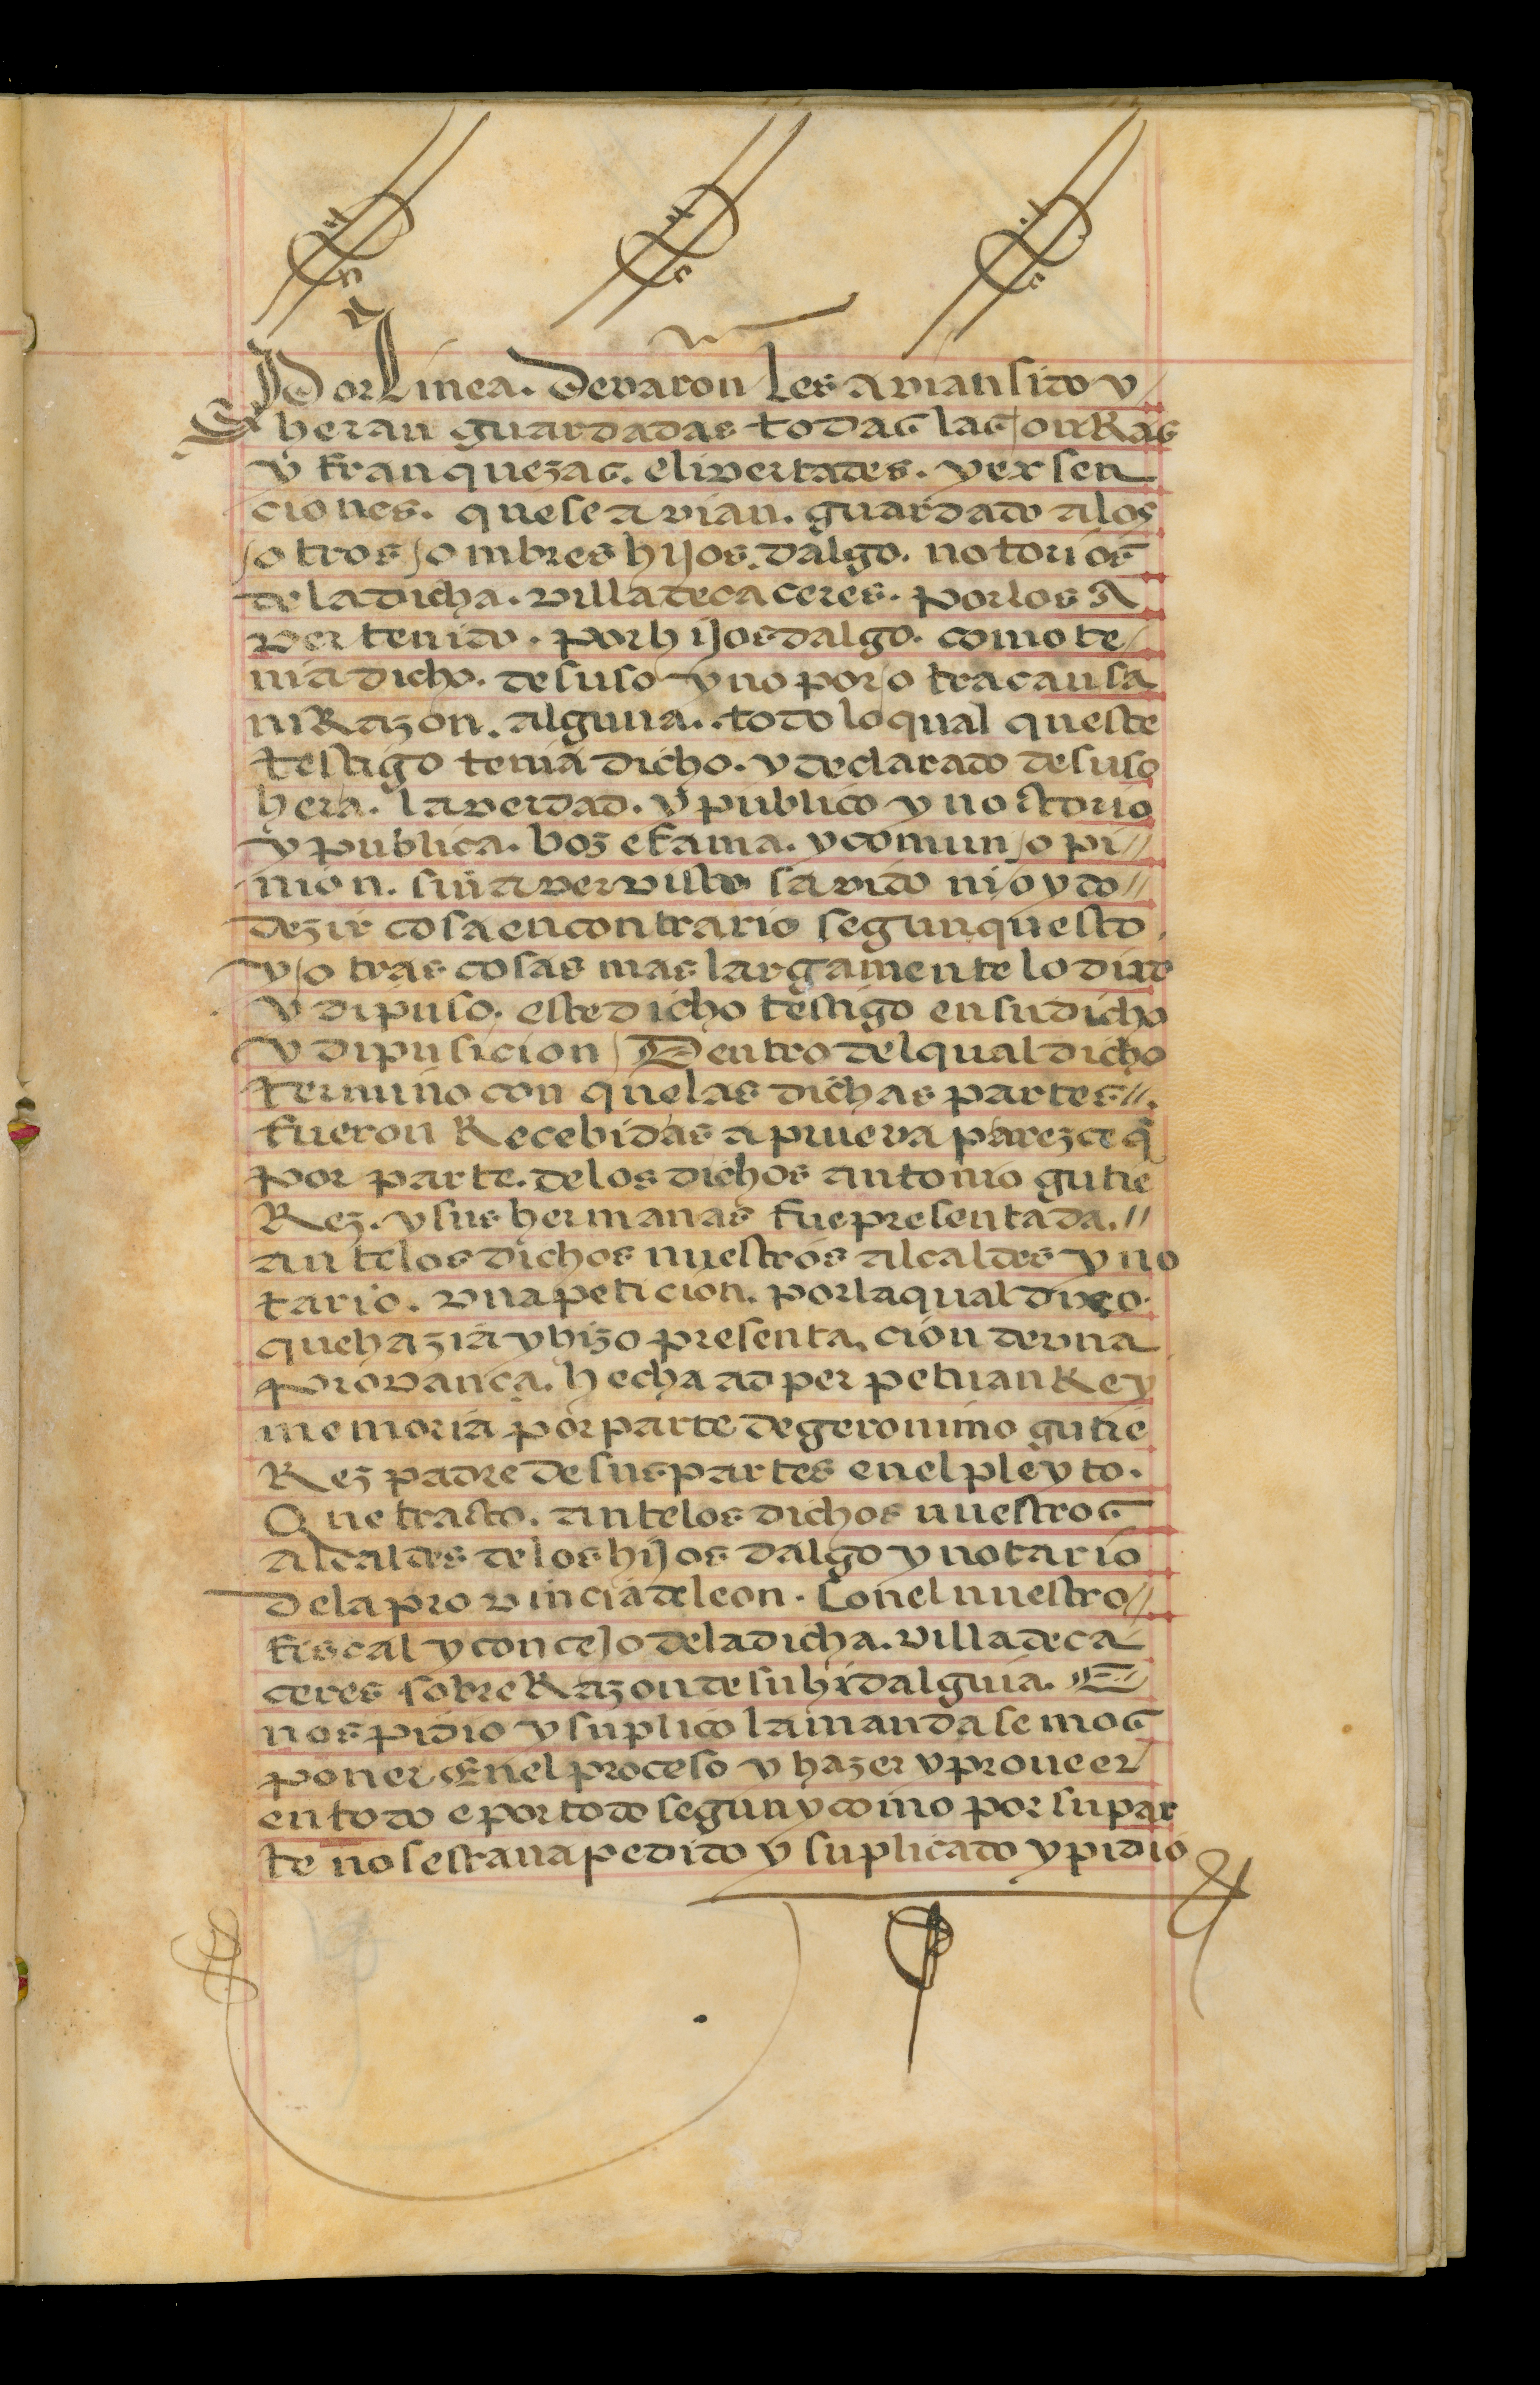 Por Linea. de varon les avian sido y
heran guardadas todas las onRas
y franquezas. e livertades. y exsen
ciones. que se avian. guardado a los
otros ombres hijos. dalgo. notorios
de la dicha. villa de caceres. por los A
ver tenido. por hijosdalgo. como te
nia dicho. de suso y no por otra causa
ni Razon. alguna. todo lo qual queste
testigo tenia dicho. y declarado de suso
hera. la verdad. y publico y nostorio
y publica. boz e fama. y comun opi//
nion. sin aver visto savido ni oydo//
dezir cosa en contrario segun questo
y otras cosas mas largamente lo dixe
y dipuso. este dicho testigo en su dicho
y dipusicion Dentro del qual dicho
termino con que las dichas partes//.
fueron Recebidas a prueva parezce q̃
por parte. de los dichos antonio gutie
Rez. y sus hermanas fue presentada.//
ante los dichos nuestros alcaldes y no
tario. vna peticion. por la qual dixo.
que hazia y hizo presenta,cion de vna
provança. hecha ad perpetuan Rey
memoria por parte de geronimo gutie
Rez padre de sus partes en el pleyto.
Que trasto. ante los dichos nuestros
alcaldes de los hijos dalgo y notario
de la provincia de leon. Con el nuestro//
fiscal y concejo de la dicha. villa de ca
ceres sobre Razon de su hidalguia. E
nos pidio y suplico la mandasemos
poner En el proceso y hazer y proueer
en todo e por todo segun y como por su par
te nos estaua pedido y suplicado y pidio